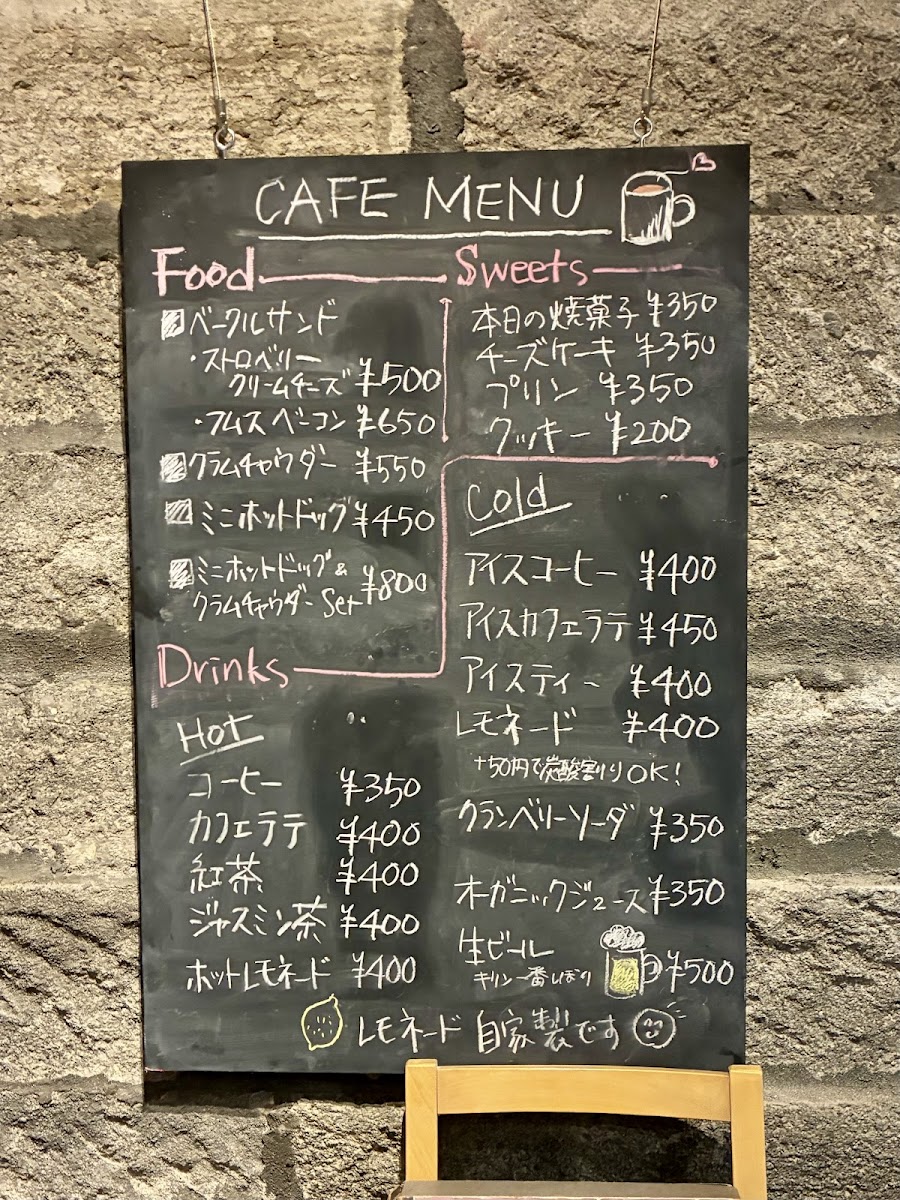 CAFE MENU
Food
ベーグルサンド
・ストロベリー
クリームチーズ ¥500
・フムスベーコン ¥650
クラムチャウダー ¥550
ミニホットドッグ ¥450
ミニホットドッグ&
クラムチャウダー Set ¥800
Sweets
本日の焼菓子 ¥350
チーズケーキ ¥350
プリン ¥350
クッキー ¥200
Drinks
Hot
コーヒー ¥350
カフェラテ ¥400
紅茶 ¥400
ジャスミン茶 ¥400
ホットレモネード ¥400
Cold
アイスコーヒー ¥400
アイスカフェラテ ¥450
アイスティー ¥400
レモネード ¥400
+50円で炭酸割りOK!
クランベリーソーダ ¥350
オーガニックジュース ¥350
生ビール
キリン一番しぼり ¥500
レモネード 自家製です